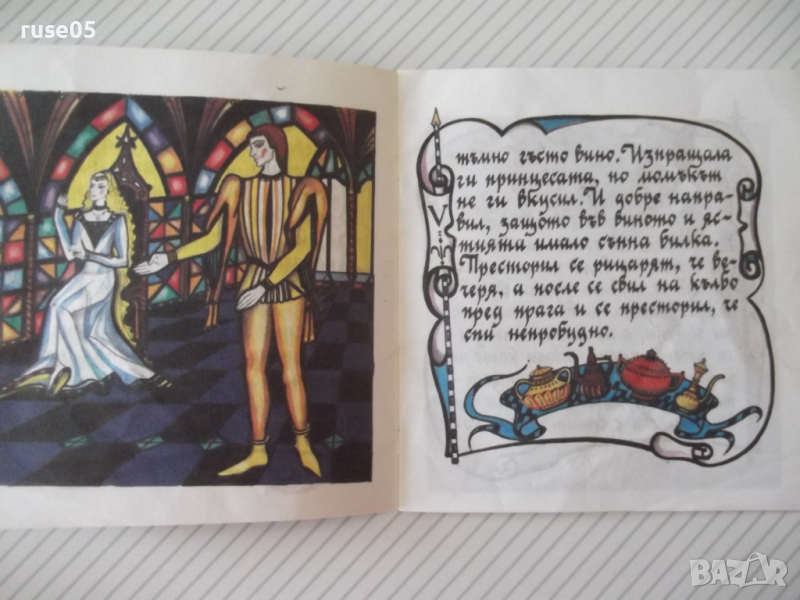 ruse05
тъмно гъсто вино. Изпращала
ги принцесата, но момъкът
не ги вкусил. И добре напра-
вил, защото във виното и яс-
тията имало сънна билка.
Престорил се рицарят, че ве-
черя, а после се свил на кълбо
пред прага и се престорил, че
спи непробудно.
BAZAR